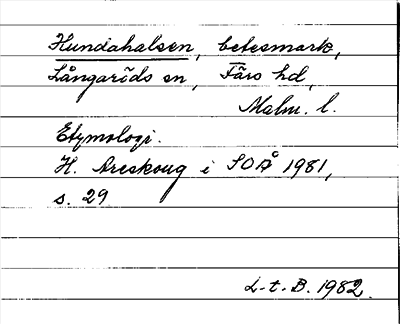 Hundahalsen, betesmark,
Långaröds sn, Färs hd,
Malm. l.
Etymologi.
H. Areskoug i SOÅ 1981,
s. 29
L-t. B. 1982.